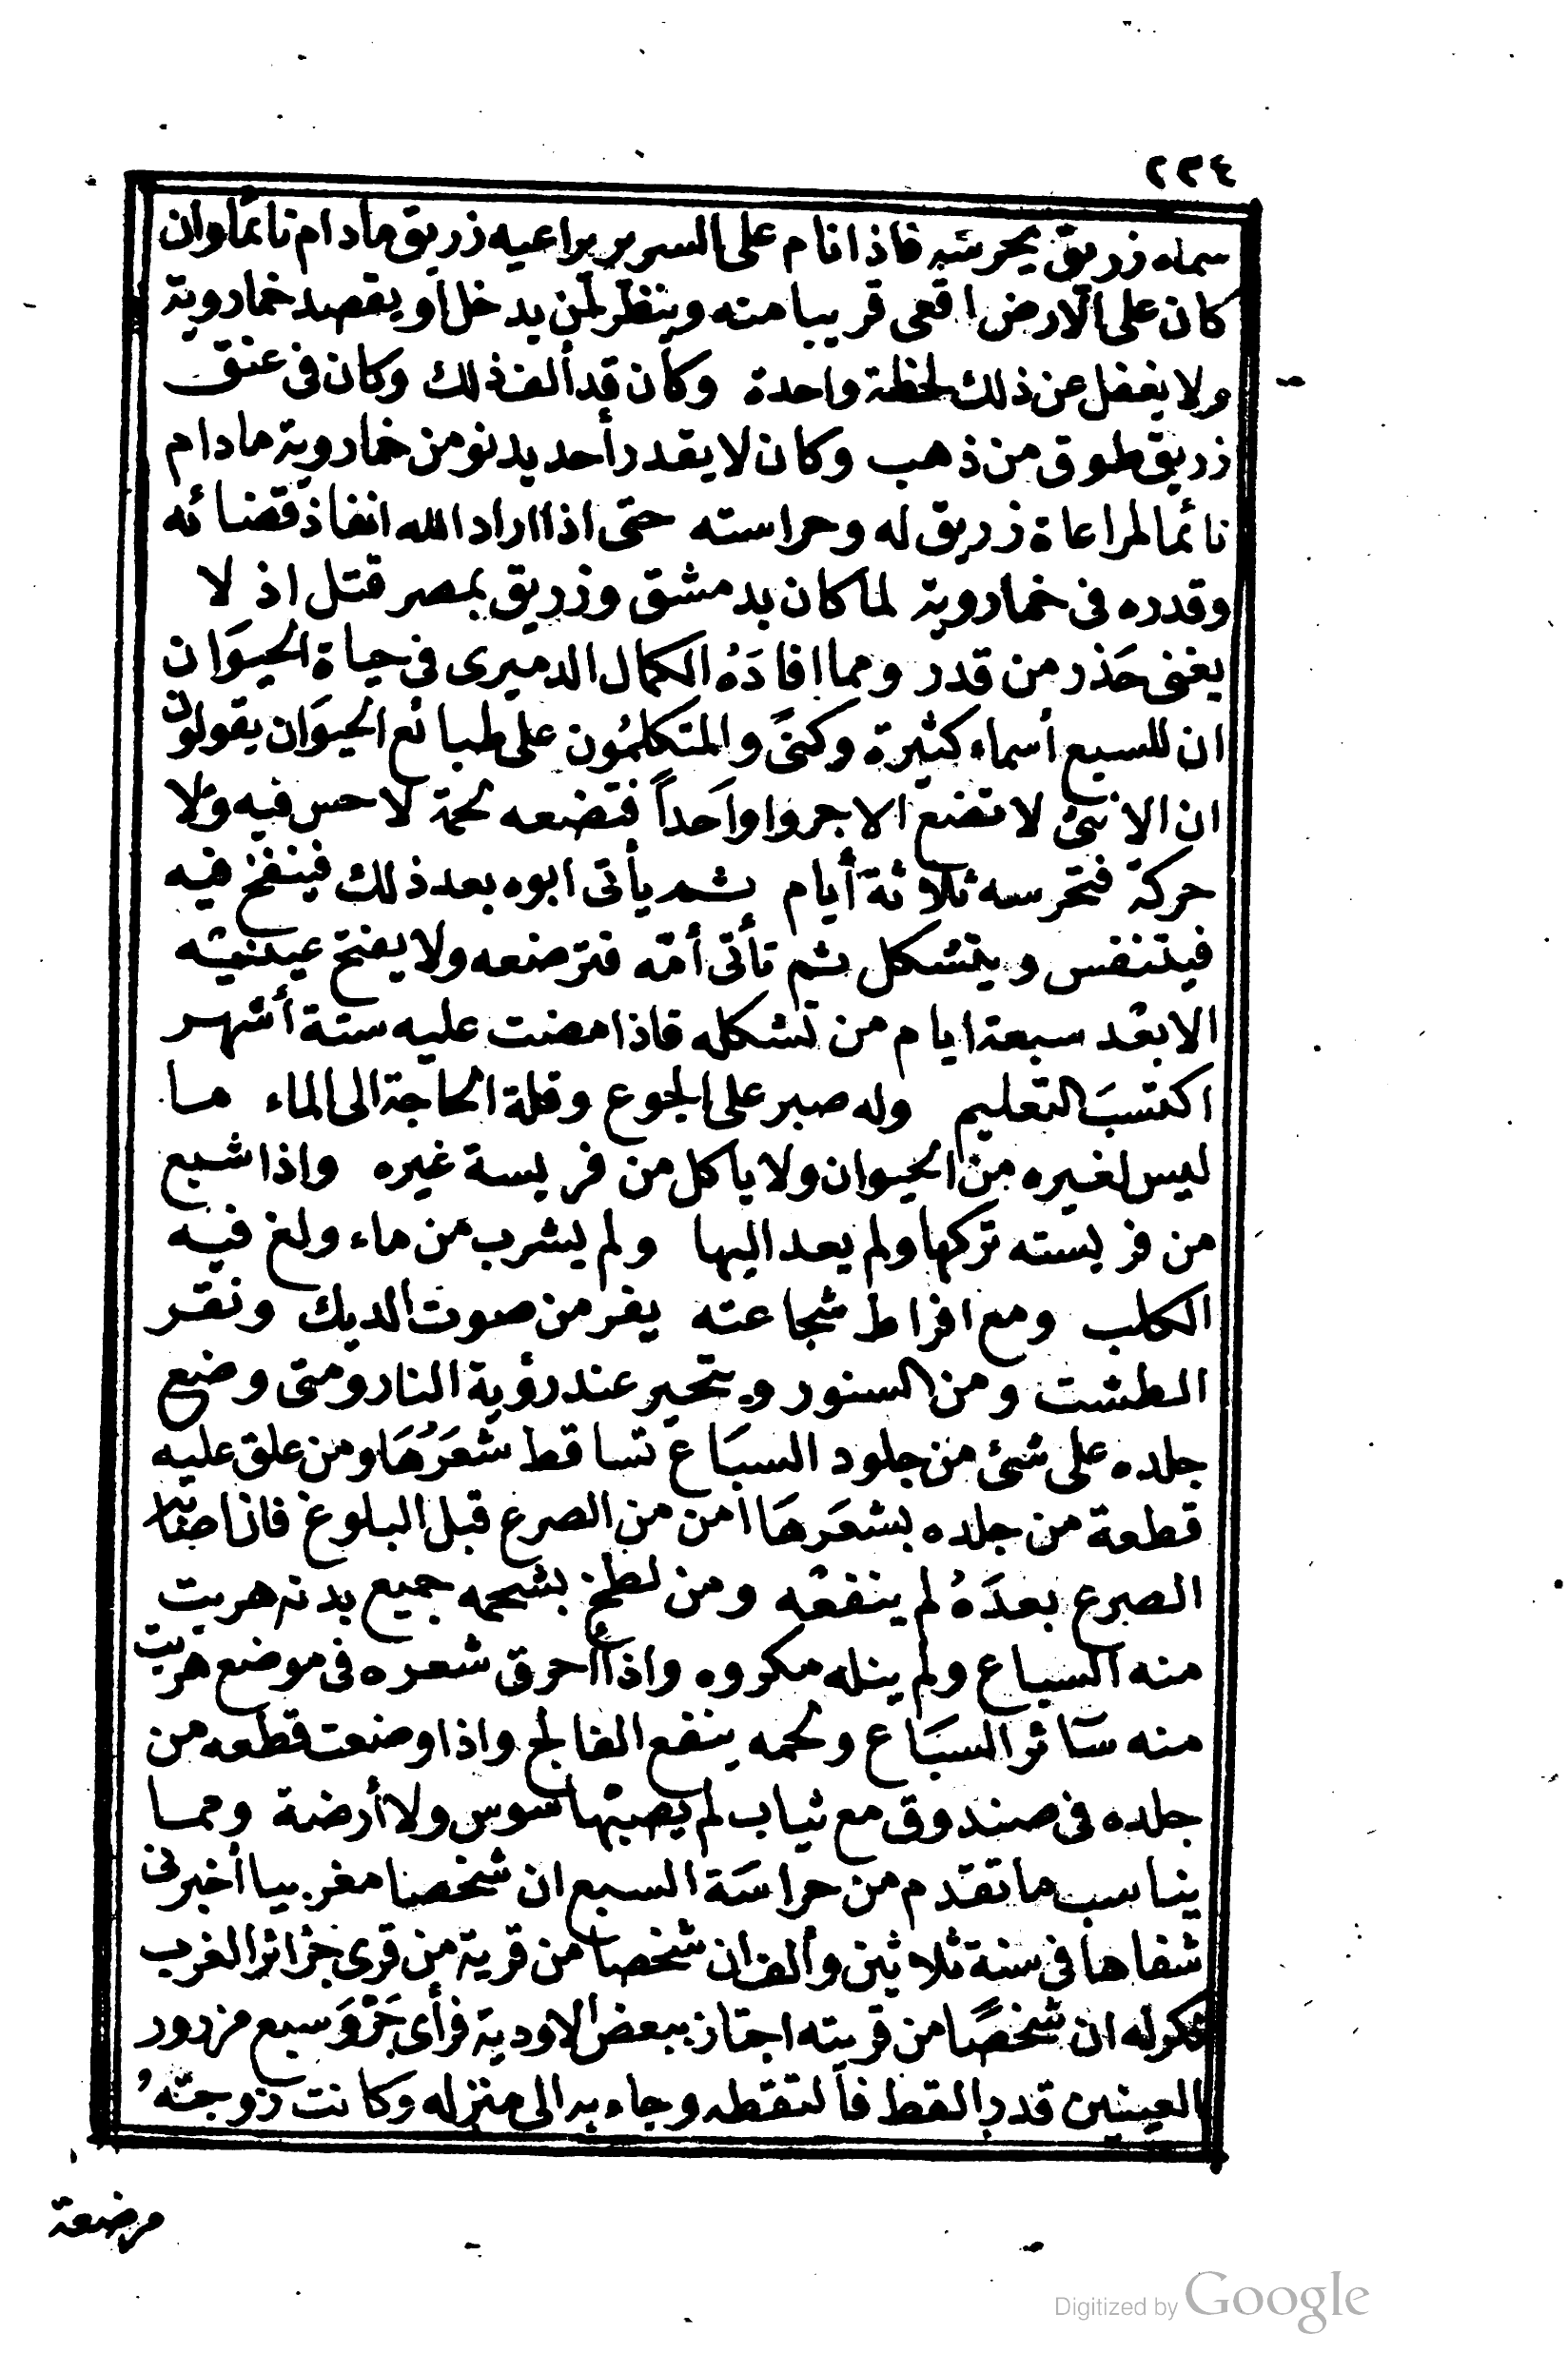 ٢٣٤
سماه زريق يحرسه فاذا نام على السرير يراعيه زريق مادام نائما وان
كان على الارض اقعى قريبا منه وينظر لمن يدخل أو يقصد خمارويه
ولا يغفل عن ذلك لحظة واحدة وكان قد ألف ذلك وكان فى عنق
زريق طوق من ذهب وكان لا يقدر أحد يدنو من خمارويه مادام
نائما لمراعاة زريق له وحراسته حتى اذا اراد الله انفاذ قضائه
وقدره فى خمارويه لما كان بدمشق وزريق بمصر قتل اذ لا
يغنى حَذر من قدر ومما افادَهُ الكمال الدميرى فى حياة الحيوَان
ان للسبع أسماء كثيرة وكنىً والمتكلمُون على طبائع الحيوَان يقولون
ان الانثى لا تضع الا جروا واحَداً فتضعه لحمة لا حس فيه ولا
حركة فتحرسه ثلاثة أيام ثم يأتى ابوه بعد ذلك فينفخ فيه
فيتنفس ويتشكل ثم تأتى أمّه فترضعه ولا يفتح عينيه
الا بعد سبعة ايام من تشكله فاذا مضت عليه ستة أشهر
اكتسَب التعليم وله صبر على الجوع وقلة الحاجة الى الماء ما
ليس لغيره من الحيوان ولا ياكل من فريسة غيره واذا شبع
من فريسته تركها ولم يعد اليها ولم يشرب من ماء ولغ فيه
الكلب ومع افراط شجاعته يفر من صوت الديك ونقر
الطشت ومن السنور ويتحير عند رؤية النار ومتى وضع
جلده على شئ من جلود السبَاع تساقط شعَرُهَا ومن علق عليه
قطعة من جلده بشعَرهَا امن من الصرع قبل البلوغ فان اصابه
الصرع بعدَهُ لم ينفعه ومن لطخ بشحمه جميع بدنه هربت
منه السباع ولم ينله مكروه واذا أحرق شعره فى موضع هربت
منه سَائر السبَاع ولحمه ينفع الفالج واذا وضعت قطعه من
جلده فى صندوق مع ثياب لم يصبها سوس ولا أرضة ومما
يناسب ما تقدم من حراسَة السبع ان شخصا مغربيا أخبرنى
شفاها فى سنة ثلاثين وألف ان شخصا من قرية من قرى جزائر الغرب
ذكر له ان شخصًا من قريته اجتاز ببعض الاودية فرأى جَرْوَ سبع مزرور
العينين قدر القط فالتقطه وجاء به الى منزله وكانت زوجتهُ
مرضعة
Digitized by Google